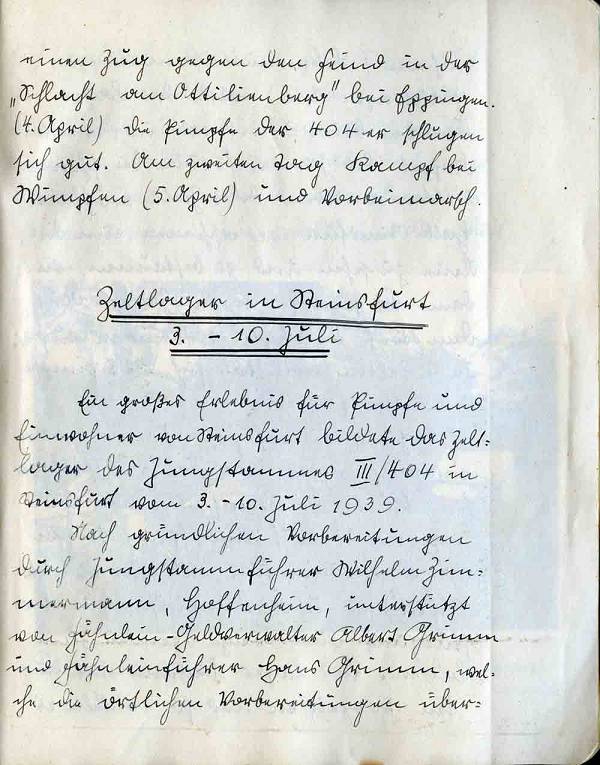 einen Zug gegen den Feind in der
„Schlacht am Ottilienberg" bei Eppingen.
(4. April) Die Pimpfe der 404 er schlugen
sich gut. Am zweiten Tag Kampf bei
Wimpfen (5. April) und Vorbeimarsch.
Zeltlager in Steinsfurt
3. - 10. Juli
Ein großes Erlebnis für Pimpfe und
Einwohner von Steinsfurt bildete das Zelt-
lager des Jungstammes III/404 in
Steinsfurt vom 3. - 10. Juli 1939.
Nach gründlichen Vorbereitungen
durch Jungstammführer Wilhelm Zim-
mermann, Hoffenheim, unterstützt
von Fähnlein-Geldverwalter Albert Grimm
und Fähnleinführer Hans Grimm, wel-
che die örtlichen Vorbereitungen über-